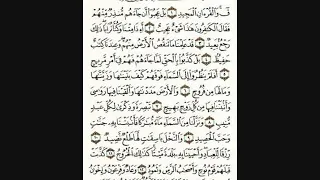 قٓ وَٱلْقُرْءَانِ ٱلْمَجِيدِ ١ بَلْ عَجِبُوٓا۟ أَن جَآءَهُم مُّنذِرٌ مِّنْهُمْ
فَقَالَ ٱلْكَٰفِرُونَ هَٰذَا شَىْءٌ عَجِيبٌ ٢ أَءِذَا مِتْنَا وَكُنَّا تُرَابًا ذَٰلِكَ
رَجْعٌۢ بَعِيدٌ ٣ قَدْ عَلِمْنَا مَا تَنقُصُ ٱلْأَرْضُ مِنْهُمْ وَعِندَنَا كِتَٰبٌ
حَفِيظٌۢ ٤ بَلْ كَذَّبُوا۟ بِٱلْحَقِّ لَمَّا جَآءَهُمْ فَهُمْ فِىٓ أَمْرٍ مَّرِيجٍ
٥ أَفَلَمْ يَنظُرُوٓا۟ إِلَى ٱلسَّمَآءِ فَوْقَهُمْ كَيْفَ بَنَيْنَٰهَا وَزَيَّنَّٰهَا
وَمَا لَهَا مِن فُرُوجٍ ٦ وَٱلْأَرْضَ مَدَدْنَٰهَا وَأَلْقَيْنَا فِيهَا رَوَٰسِىَ
وَأَنۢبَتْنَا فِيهَا مِن كُلِّ زَوْجٍۭ بَهِيجٍ ٧ تَبْصِرَةً وَذِكْرَىٰ لِكُلِّ عَبْدٍ
مُّنِيبٍ ٨ وَنَزَّلْنَا مِنَ ٱلسَّمَآءِ مَآءً مُّبَٰرَكًا فَأَنۢبَتْنَا بِهِۦ جَنَّٰتٍ
وَحَبَّ ٱلْحَصِيدِ ٩ وَٱلنَّخْلَ بَاسِقَٰتٍ لَّهَا طَلْعٌ نَّضِيدٌ ١٠
رِّزْقًا لِّلْعِبَادِ وَأَحْيَيْنَا بِهِۦ بَلْدَةً مَّيْتًا كَذَٰلِكَ ٱلْخُرُوجُ ١١ كَذَّبَتْ
قَبْلَهُمْ قَوْمُ نُوحٍ وَأَصْحَٰبُ ٱلرَّسِّ وَثَمُودُ ١٢ وَعَادٌ وَفِرْعَوْنُ وَإِخْوَٰنُ